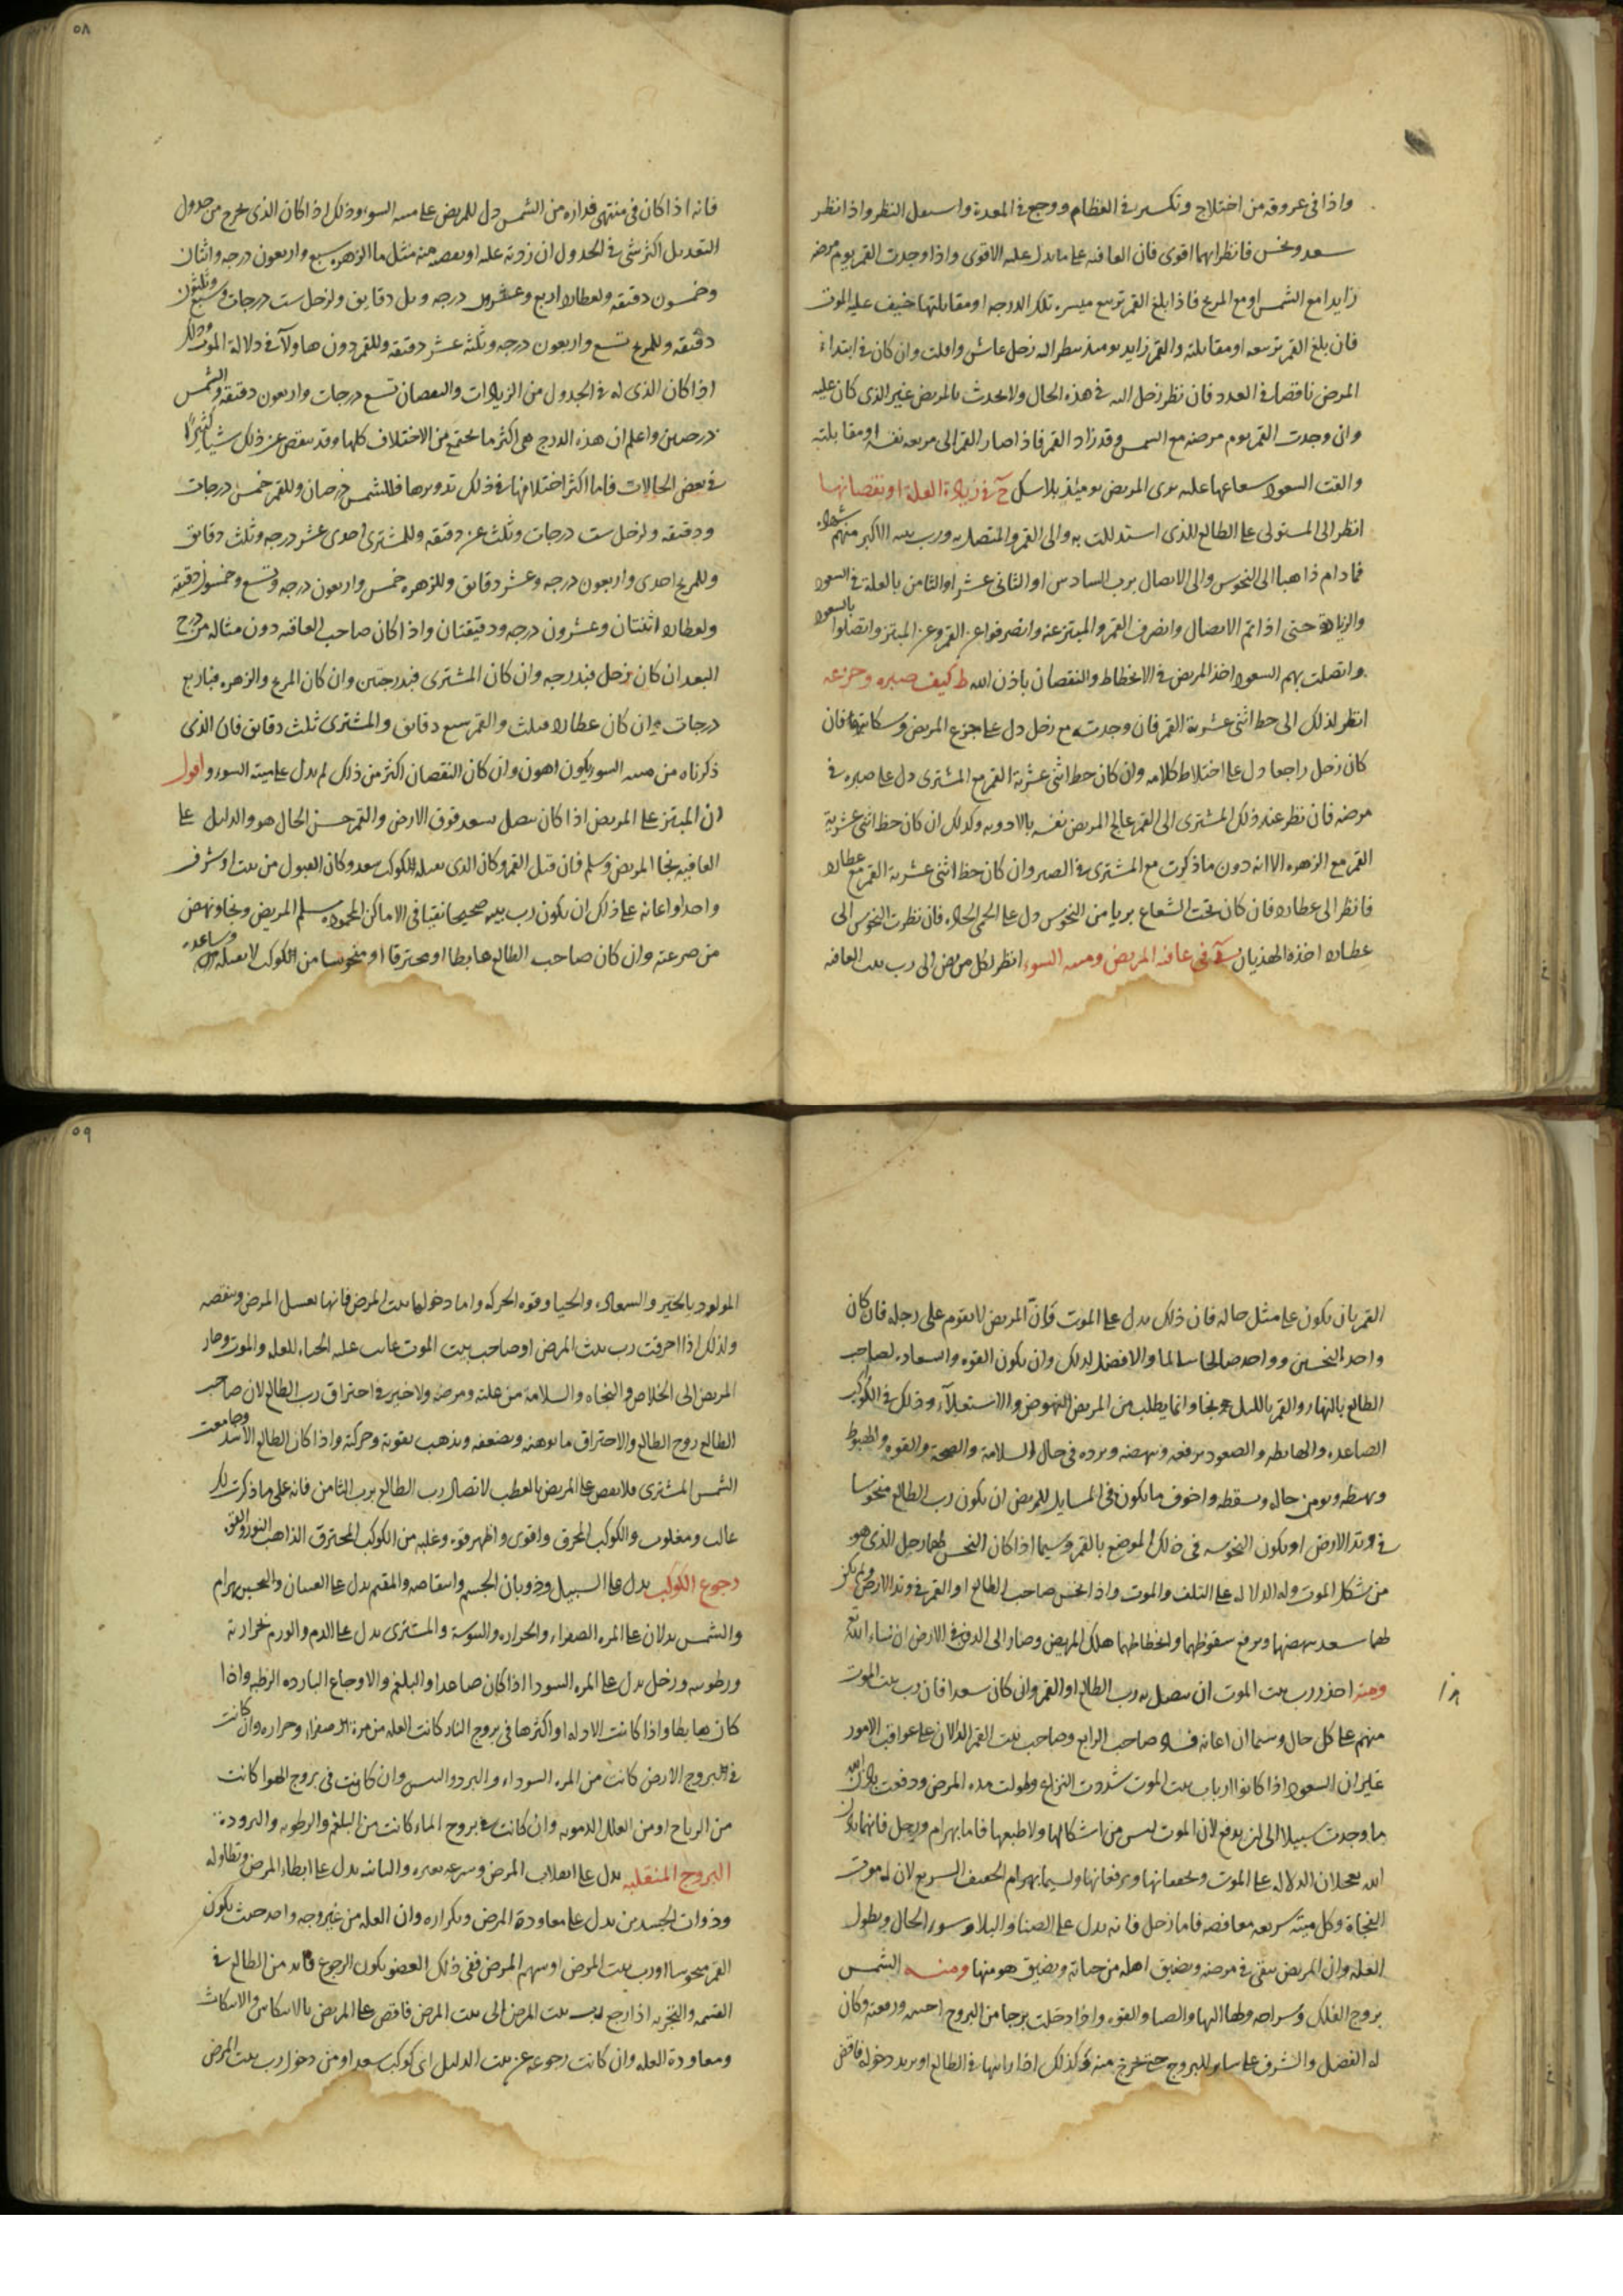 واذا فى عروقه من اختلاج وتكسير فى العظام ووجع فى المعدة واستعمل النظر واذا نظر
سعد ونحس فانظر ايهما اقوى فان العاقبة على ما يدل عليه الاقوى واذا وجدت القمر يوم مرضه
زايدا مع الشمس او مع المريخ فاذا بلغ القمر تربيع مسيره تلك الدرجه او مقابلتها خيف عليه الموت
فان بلغ القمر تربيعه او مقابلته والقمر زايد يومئذ ينظر اليه زحل عاش وافلت وان كان فى ابتداء
المرض ناقصا فى العدد فان نظر زحل اليه فى هذه الحال ولا يحدث بالمريض غير الذى كان عليه
وان وجدت القمر يوم مرضه مع الشمس وقد زاد القمر فاذا صار القمر الى تربيعه نفسه او مقابلته
والقت السعود شعاعها عليه برى المريض يومئذ بلا شك ح فى زيادة العلة او نقصانها
انظر الى المستولى على الطالع الذى استدللت به والى القمر والمتصل به ورب بيته الاكبر منهم شهادة
فما دام ذاهبا الى النحوس والى الاتصال برب السادس او الثانى عشر او الثامن بالعلة فى السعود
والزيادة حتى اذا تم الاتصال وانصرف القمر والمبتز عنه وانصرفوا عن القمر وعن المبتز واتصلوا بالسعود
واتصلت بهم السعود اخذ المريض فى الانحطاط والنقصان باذن الله ط كيف صبره وجزعه
انظر لذلك الى حظ اثنى عشرية القمر فان وجدته مع زحل دل على جزع المريض وشكايته فان
كان زحل راجعا دل على اختلاط كلامه وان كان حظ اثنى عشرية القمر مع المشترى دل على صبره فى
مرضه فان نظر عند ذلك المشترى الى القمر عالج المريض نفسه بالادويه وكذلك ان كان حظ اثنى عشرية
القمر مع الزهره الا انه دون ما ذكرت مع المشترى فى الصبر وان كان حظ اثنى عشرية القمر مع عطارد
فانظر الى عطارد فان كان تحت الشعاع بريا من النحوس دل على الحمى الحادة فان نظرت النحوس الى
عطارد اخذه الهذيان فى عاقبة المريض وميتة السوء انظر لكل مريض الى رب بيت العاقبة
٥٨
فانه اذا كان فى منتهى قداره من الشمس دل للمريض على ميتة السوء وذلك اذا كان الذى يخرج من جدول
التعديل اكثر شى فى الجدول ان زدته عليه او نقصته منه مثل ما الزهره سبع واربعون درجه واثنان
وخمسون دقيقه ولعطارد اربع وعشرون درجه وثلث دقايق ولزحل ست درجات وسبع وثلثون
دقيقه وللمريخ تسع واربعون درجه وثلثة عشر دقيقه وللقمر دون هاولآ فى دلالة الموت وذلك
اذا كان الذى له فى الجدول من الزيادات والنقصان تسع درجات واربعون دقيقه والشمس
درجتين واعلم ان هذه الدرج هى اكثر ما تجتمع من الاختلاف كلها وقد ينقص عن ذلك شيا كثيرا
فى بعض الحالات فاما اكثر اختلافها فى فلك تدويرها فللشمس درجتان وللقمر خمس درجات
ودقيقه ولزحل ست درجات وثلث عشر دقيقه وللمشترى احدى عشر درجه وثلث دقايق
وللمريخ احدى واربعون درجه وعشر دقايق وللزهره خمس واربعون درجه وتسع وخمسون دقيقة
ولعطارد اثنتان وعشرون درجه ودقيقتان واذا كان صاحب العاقبه دون مثاله من درج
البعد ان كان زحل فبدرجه وان كان المشترى فبدرجتين وان كان المريخ والزهره فباربع
درجات وان كان عطارد فبثلث والقمر سبع دقايق والمشترى ثلث دقايق فان الذى
ذكرناه من ميتة السوء يكون اهون وان كان النقصان اكثر من ذلك لم يدل على ميتة السوء واقول
ان المبتز على المريض اذا كان متصل بسعد فوق الارض والقمر حسن الحال هو والدليل على
العافيه نجا المريض وسلم فان قبل القمر وكان الذى يقبله الكوكب سعد وكان القبول من بيت او شرف
واحد او اعانه على ذلك ان يكون رب بيته صحيحا نقيا فى الاماكن المحموده سلم المريض ونجا ونهض
من صرعته وان كان صاحب الطالع هابطا او محترقا او منحوسا من الكوكب لا يقبله وساعده
القمر بان يكون على مثل حاله فان ذلك يدل على الموت وان المريض لا يقوم على رجله فان كان
واحد النحسين وواحد صالحا سالما والافضل لذلك وان يكون القوه والسعاده لصاحب
الطالع بالنهار والقمر بالليل نجا وانما يطلب من المريض النهوض والاستعلاء وذلك فى الكواكب
الصاعده والهابطه والصعود يرفعه وينهضه ويرده فى حال السلامة والصحة والقوه والهبوط
ويهبطه ويوهن حاله ويسقطه واخوف ما يكون فى المسايل للمريض ان يكون رب الطالع منحوسا
فى وتد الارض او يكون النحوسه فى ذلك الموضع بالقمر وسيما اذا كان النحس لهما زحل الذى هو
من شكل الموت وله الدلاله على التلف والموت واذا انحس صاحب الطالع او القمر فى وتد الارض ولم يكن
لهما سعد ينهضها ويرفع سقوطهما وانحطاطهما هلك المريض وصار الى الدفن فى الارض ان شاء الله تع
ومنه احذر رب بيت الموت ان يتصل به رب الطالع او القمر وان كان سعدا فان رب بيت الموت
منهم على كل حال وسيما ان اعانه فساد صاحب الرابع وصاحب بيت القمر الدالان على عواقب الامور
غير ان السعود اذا كانوا ارباب بيت الموت شددت النزاع وطولت مدة المرض ودفعت باذن الله
ما وجدت سبيلا الى ان يدفع لان الموت ليس من اشكالها ولا طبعها فاما بهرام وزحل فانهما باذن
الله يعجلان الدلاله على الموت ويحققانها ويرفعانها ولسيما بهرام الخفيف السريع لان له موت
الفجاة وكل ميتة سريعه مغافصه فاما زحل فانه يدل على الضنا والبلاء وسوء الحال ويطول
العله وان المريض يبقى فى مرضه ويضيق اهله من حياته ويضيق هو منها ومنه الشمس
بروج الفلك وسراجه ولها البها والضيا والقوه واذا دخلت برجا من البروج احيته ورفعته وكان
له الفضل والشرف على ساير البروج حتى تخرج منه وكذلك اذا رايتها فى الطالع او يريد دخوله فاقض
٥٩
المولود بالخير والسعاده والحيا وقوه الحركه واما دخولها بيت المرض فانها تغسل المرض وتنقصه
ولذلك اذا احرقت رب بيت المرض او صاحب بيت الموت غالب عليه الحياه للعله والموت وصار
المريض الى الخلاص والنجاه والسلامة من علته ومرضه ولا خير فى احتراق رب الطالع لان صاحب
الطالع روح الطالع والاحتراق مما يوهنه ويضعفه ويذهب بقوته وحركته واذا كان الطالع الاسد وجامعت
الشمس المشترى فلا تقض على المريض بالعطب لاتصال رب الطالع برب الثامن فانه على ما ذكرت لك
غالب ومغلوب والكوكب المحرق واقوى واظهر قوه وغلبه من الكوكب المحترق الذاهب النور والقوة
رجوع الكوكب يدل على السبيل وذوبان الجسم وانتقاصه والمقيم يدل على الغشيان والتحبس بهرام
والشمس يدلان على المره الصفراء والحراره واليبوسة والمشترى يدل على الدم والورم لحرارته
ورطوبته وزحل يدل على المره السودا اذا كان صاعدا والبلغم والاوجاع البارده الرطبه واذا
كان هابطا واذا كانت الادله او اكثرها فى بروج النار كانت العله من مرة الصفراء وحراره وان كانت
فى بروج الارض كانت من المره السوداء والبرد واليبس وان كانت فى بروج الهوا كانت
من الرياح او من العلل الدمويه وان كانت فى بروج الماء كانت من البلغم والرطوبه والبروده
البروج المنقلبه يدل على انقلاب المرض وسرعه تغيره والثابته يدل على ابطاء المرض وتطاوله
وذوات الجسدين يدل على معاودة المرض وتكراره وان العله من غير وجه واحد حيث يكون
القمر منحوسا او رب بيت المرض او سهم المرض ففى ذلك العضو يكون الرجوع فانه من الطالع فى
القسمه والتجزيه اذا رجع رب بيت المرض الى بيت المرض فاقض على المريض بالانتكاس والانتكاث
ومعاودة العله وان كانت رجوعه عن بيت الدليل اى كوكب سعد او من دخول رب بيت المرض